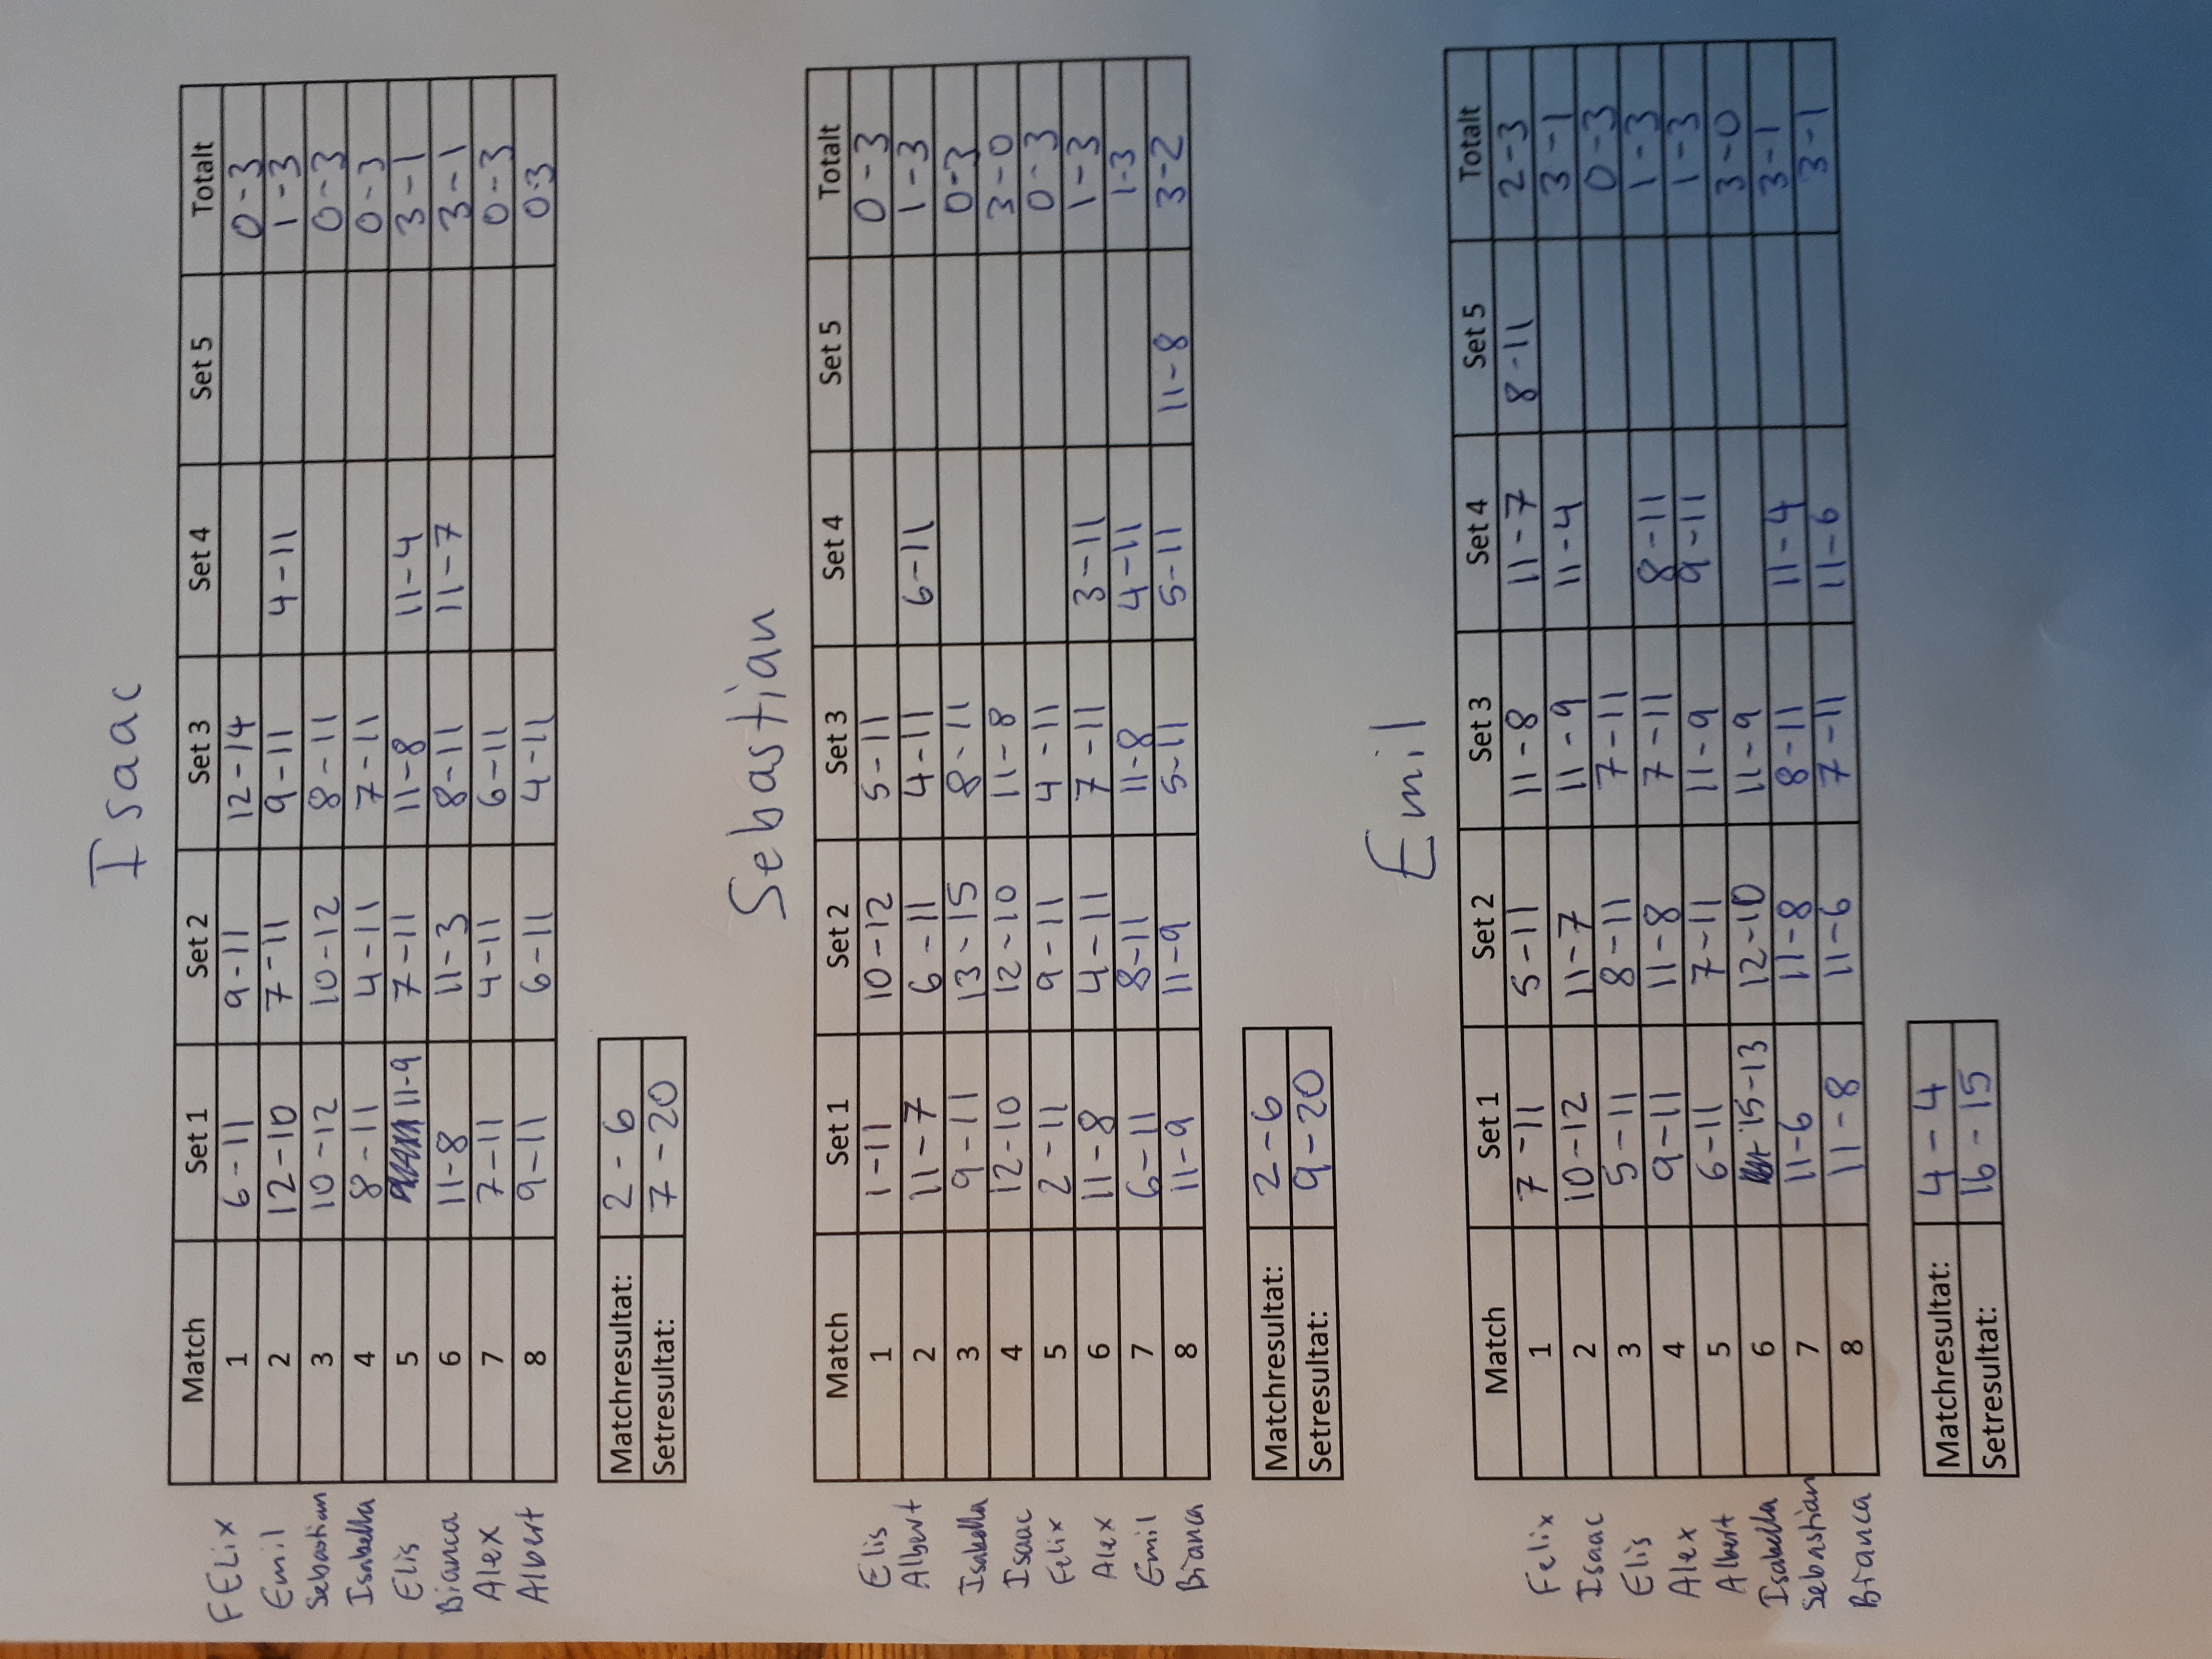 Isaac
Match Set 1 Set 2 Set 3 Set 4 Set 5 Totalt
FELix 1 6-11 9-11 12-14 0-3
Emil 2 12-10 7-11 9-11 4-11 1-3
Sebastian 3 10-12 10-12 8-11 0-3
Isabella 4 8-11 4-11 7-11 0-3
Elis 5 11-9 7-11 11-8 11-4 3-1
Bianca 6 11-8 11-3 8-11 11-7 3-1
Alex 7 7-11 4-11 6-11 0-3
Albert 8 9-11 6-11 4-11 0-3
Matchresultat: 2-6
Setresultat: 7-20
Sebastian
Match Set 1 Set 2 Set 3 Set 4 Set 5 Totalt
Elis 1 1-11 10-12 5-11 0-3
Albert 2 11-7 6-11 4-11 6-11 1-3
Isabella 3 9-11 13-15 8-11 0-3
Isaac 4 12-10 12-10 11-8 3-0
Felix 5 2-11 9-11 4-11 0-3
Alex 6 11-8 4-11 7-11 3-11 1-3
Emil 7 6-11 8-11 11-8 4-11 1-3
Bianca 8 11-9 11-9 5-11 5-11 11-8 3-2
Matchresultat: 2-6
Setresultat: 9-20
Emil
Match Set 1 Set 2 Set 3 Set 4 Set 5 Totalt
Felix 1 7-11 5-11 11-8 11-7 8-11 2-3
Isaac 2 10-12 11-7 11-9 11-4 3-1
Elis 3 5-11 8-11 7-11 0-3
Alex 4 9-11 11-8 7-11 8-11 1-3
Albert 5 6-11 7-11 11-9 9-11 1-3
Isabella 6 15-13 12-10 11-9 3-0
Sebastian 7 11-6 11-8 8-11 11-4 3-1
Bianca 8 11-8 11-6 7-11 11-6 3-1
Matchresultat: 4-4
Setresultat: 16-15